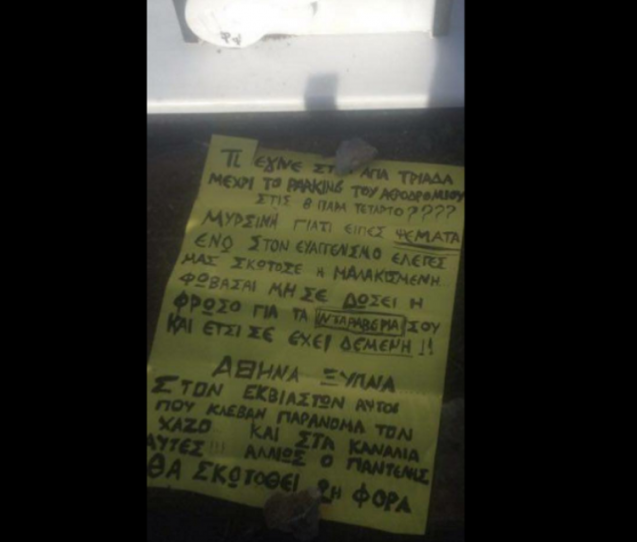 ΤΙ ΕΓΙΝΕ ΣΤΗΝ ΑΓΙΑ ΤΡΙΑΔΑ
ΜΕΧΡΙ ΤΟ PARKING ΤΟΥ ΑΕΡΟΔΡΟΜΙΟΥ
ΣΤΙΣ 8 ΠΑΡΑ ΤΕΤΑΡΤΟ????
ΜΥΡΣΙΝΗ ΓΙΑΤΙ ΕΙΠΕΣ ΨΕΜΑΤΑ
ΕΝΩ ΣΤΟΝ ΕΥΑΓΓΕΝΙΣΜΟ ΕΛΕΓΕΣ
ΜΑΣ ΣΚΟΤΩΣΕ Η ΜΑΛΑΚΙΣΜΕΝΗ
ΦΩΒΑΣΑΙ ΜΗ ΣΕ ΔΩΣΕΙ Η
ΦΡΩΣΟ ΓΙΑ ΤΑ ΙΝΤΑΡΑΒΕΡΙΑ ΣΟΥ
ΚΑΙ ΕΤΣΙ ΣΕ ΕΧΕΙ ΔΕΜΕΝΗ !!
ΑΘΗΝΑ ΞΥΠΝΑ
ΣΤΟΝ ΕΚΒΙΑΣΤΩΝ ΑΥΤΟΙ
ΠΟΥ ΚΛΕΒΑΝ ΠΑΡΑΝΟΜΑ ΤΟΝ
ΧΑΖΟ ΚΑΙ ΣΤΑ ΚΑΝΑΛΙΑ
ΑΥΤΕΣ!!! ΑΛΛΙΩΣ Ο ΠΑΝΤΕΛΗΣ
ΘΑ ΣΚΩΤΟΘΕΙ 2Η ΦΟΡΑ